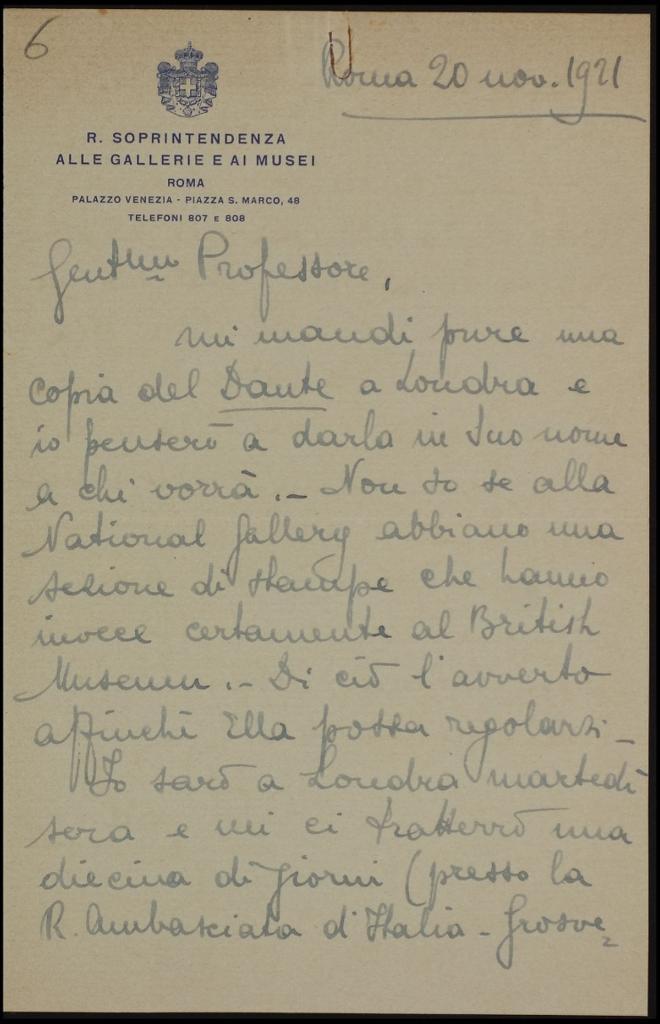 6
Roma 20 nov. 1921
R. SOPRINTENDENZA
ALLE GALLERIE E AI MUSEI
ROMA
PALAZZO VENEZIA - PIAZZA S. MARCO, 48
TELEFONI 807 E 808
Gentmo Professore,
mi mandi pure una
copia del Dante a Londra e
io penserò a darla in Suo nome
a chi vorrà. - Non so se alla
National Gallery abbiano una
sezione di stampe che hanno
invece certamente al British
Museum. - Di ciò l'avverto
affinché Ella possa regolarsi -
Io sarò a Londra martedì
sera e mi ci tratterrò una
diecina di giorni (presso la
R. Ambasciata d'Italia - Grosve-